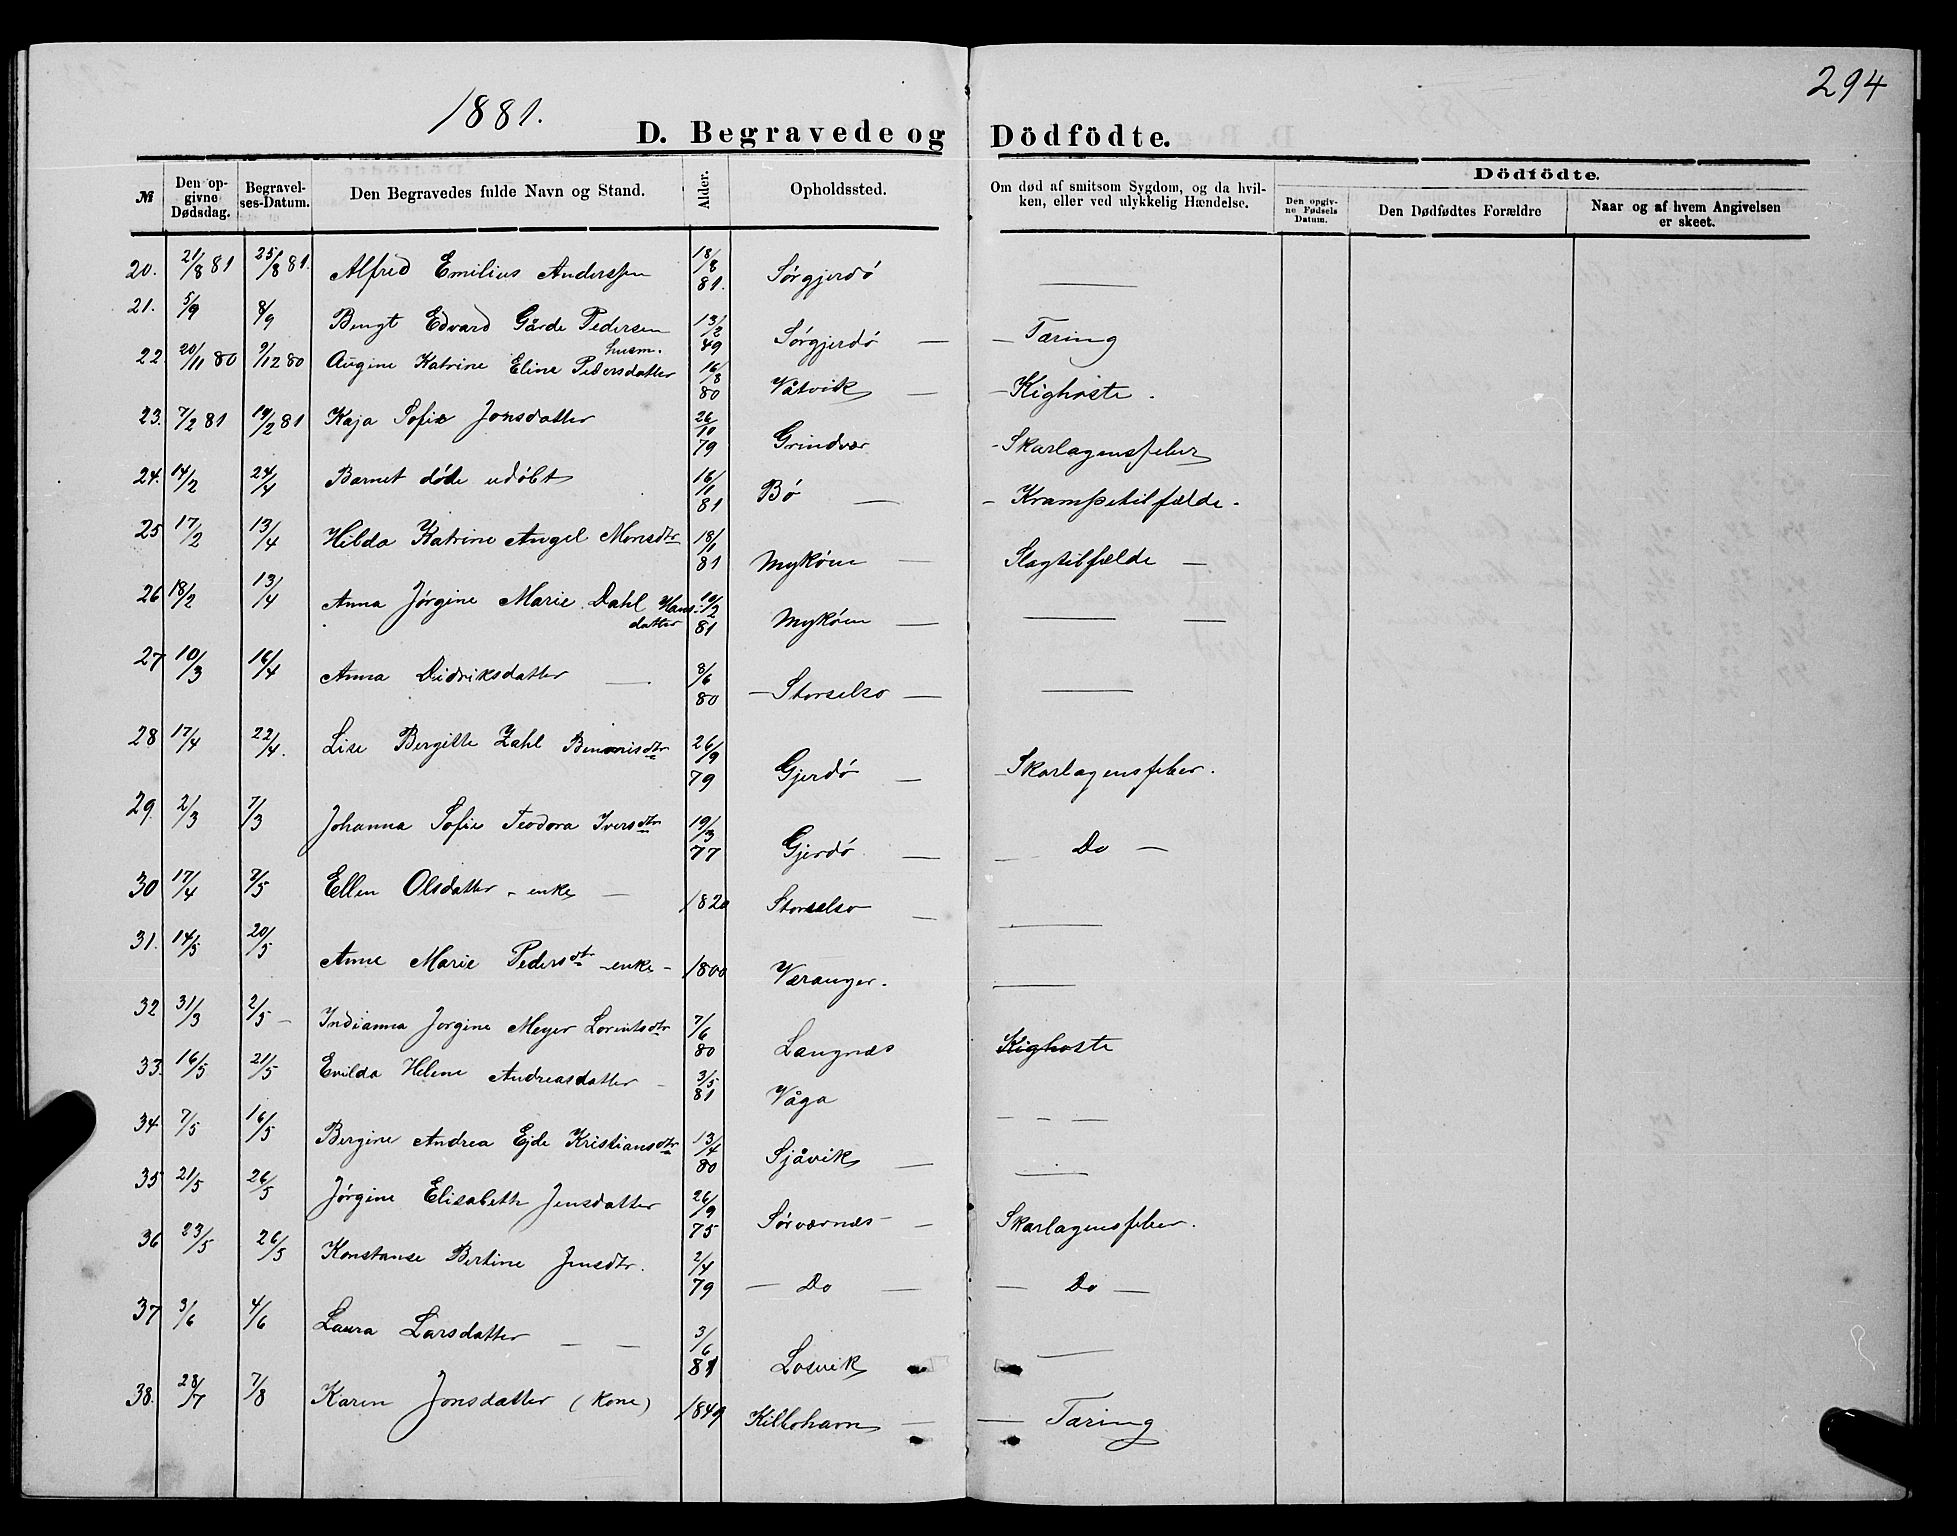 294
1881.
D. Begravede og Dödfödte.
№ Den opgivne Dødsdag. Begravelses-Datum. Den Begravedes fulde Navn og Stand. Alder. Opholdssted. Om død af smitsom Sygdom, og da hvilken, eller ved ulykkelig Hændelse. Dödfödte. Den opgivne Fødsels Datum. Den Dødfødtes Forældre Naar og af hvem Angivelsen er skeet.
20. 21/8 81 25/8 81. Alfred Emilius Anderssen 18/8 81. Sørgjerdø —
21. 5/9 8/9 Bengt Edvard Gårde Pedersen husm. 13/2 49 Sørgjerdø — Tæring
22 20/11 80 9/12 80 Augine Katrine Eline Pedersdatter 16/8 80 Våtvik — Kighoste.
23. 7/2 81 19/2 81 Kaja Sofie Jonsdatter 26/10 79 Grindvær - Skarlagensfeber
24. 14/2 24/4 Barnet døde udøbt 16/1 81 Bø — Krampetilfælde -
25 17/2 13/4 Hilda Katrine Angel Monsdtr 18/1 81 Mykøen — Slagtilfælde —
26 18/2 13/4 Anna Jørgine Marie Dahl Hansdatter 10/2 81 Mykøen — —
27 10/3 16/4 Anna Didriksdatter — 8/6 80 — Storselsø — —
28 17/4 22/4. Lise Bergitte Zahl Benonisdtr 26/9 79 Gjerdø — Skarlagensfeber.
29. 2/3 7/3 Johanna Sofie Teodora Iversdtr 19/3 77 Gjerdø — Do —
30 17/4 8/5 Ellen Olsdatter - enke — 1820 Storselsø — —
31. 14/5 20/5 Anne Marie Pedersdtr - enke - 1800 Væranger. —
32 31/3 2/5 - Indianna Jørgine Meyer Lorentsdtr 7/6 80 Langnæs Kighoste
33. 16/5 21/5 Evilda Helene Andreasdatter - 3/5 81 Våga — — —
34 7/5 16/5 Bergine Andrea Ejde Kristiansdtr 13/4 80 Sjåvik — —
35 21/5 26/5 Jørgine Elisabeth Jensdatter 26/9 75 Sørværnæs — Skarlagensfeber.
36 23/5 26/5 Konstanse Bertine Jensdtr. 2/4 79 — Do — — Do —
37 3/6 4/6 Laura Larsdatter — — 3/6 81 Losvik —
38. 28/7 7/8 Karen Jonsdatter (kone) 1849 Kilbohavn — — Tæring